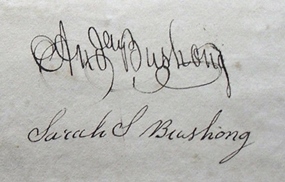 And Jay Bushong
Sarah S Bushong